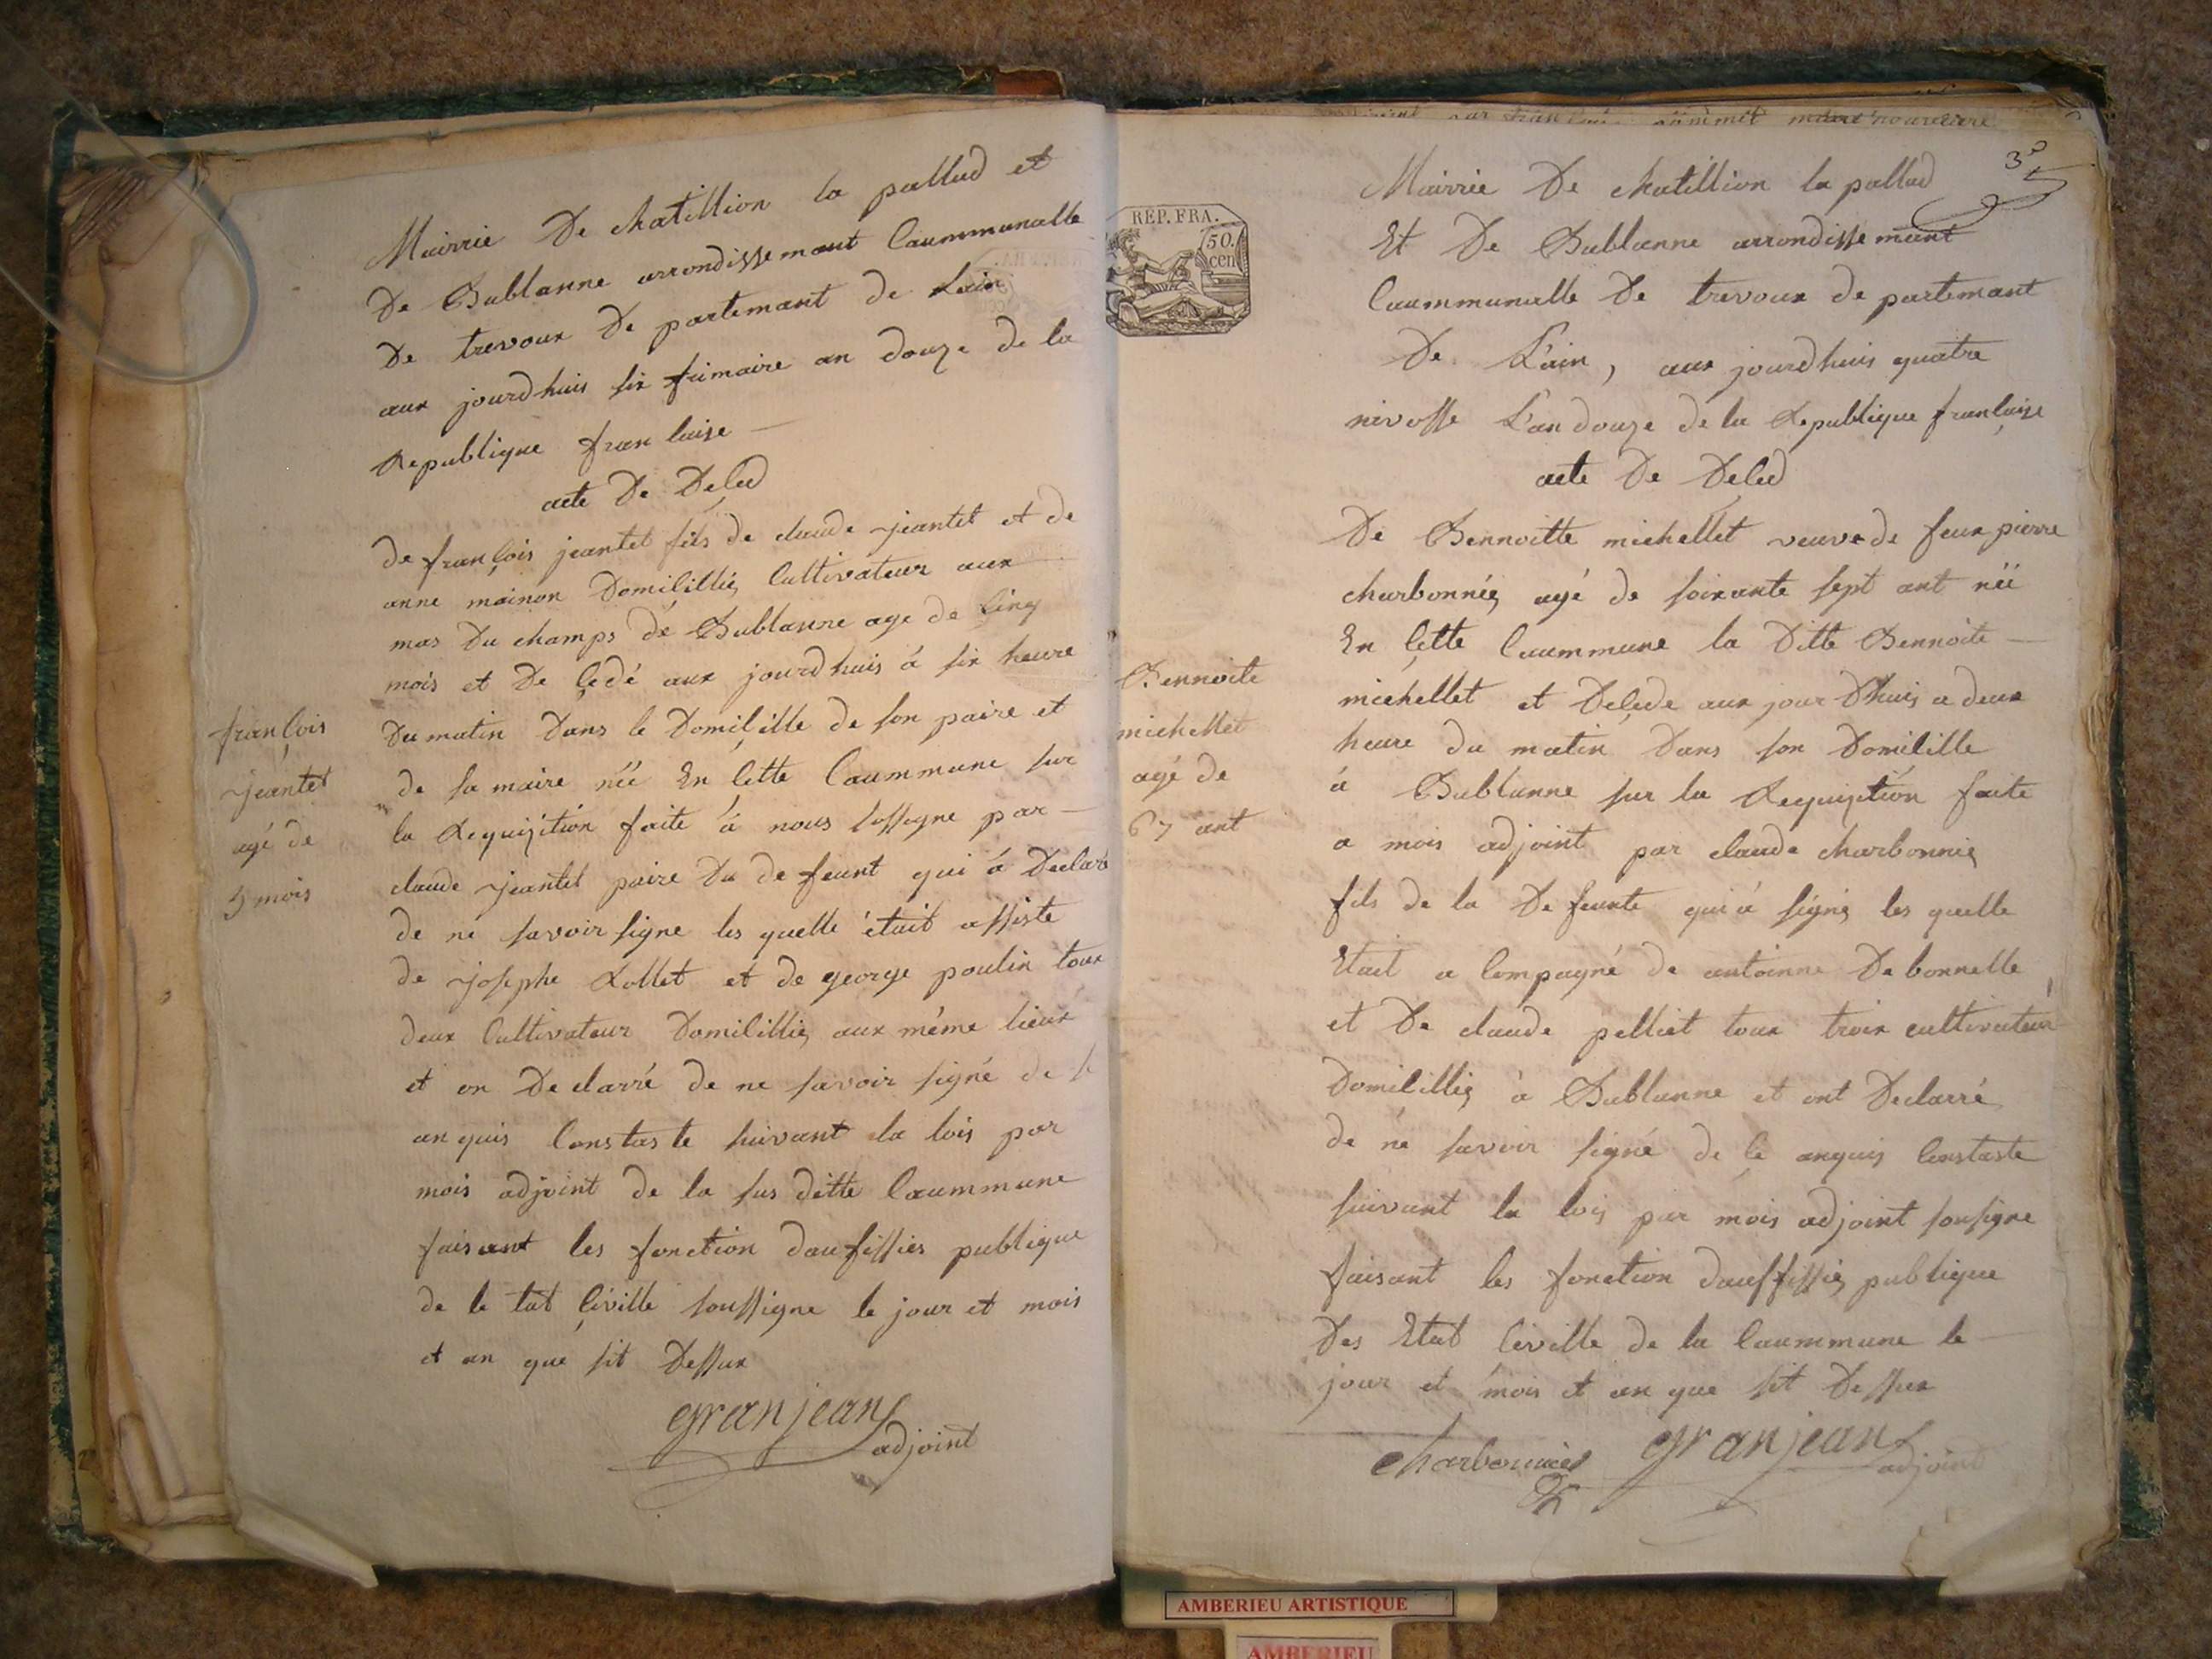 Mairrie De chatillion la pallud et
De Bublanne arrondissemant Caummunalle
De trevoux De partemant de Lain
aux jourdhuis six frimaire an douze de la
Republique francaise
acte De Deçed
de françois jeantet fils de claude jeantet et de
anne moinon Domicilliés Cultivateur aux
mas Du champs de Bublanne age de Cinq
mois et De çedé aux jourdhuis á six heure
Du matin Dans le Domiçille de son paire et
de sa maire néé En Cette Caummune sur
la Requizition faite á nous sossigne par
claude jeantet paire Du defeunt qui á Declaré
de ne savoir signe les quelle était assiste
de josephe Rollet et de george poulin toux
deux Cultivateur Domicilliés aux méme lieux
et on De clarré de ne savoir signé de
an quis Constaste suivant la lois par
mois adjoint de la sus ditte Caummune
faisant les fonction daufissiés publique
de le tat Çiville soussigne le jour et mois
et an que sit Dessux
granjean
adjoint
françois
jeantet
agé de
5 mois
REP. FRA.
50.
cen
3e
Mairrie De chatillion la pallud
Et De Bublanne arrondissemant
Caummunalle De trevoux de partemant
De L'ain, aux jourdhuis quatre
nivosse L'an douze de la Republique française
acte De Deçed
De Bennoitte michellet veuve de feux pierre
charbonniés agé de soixante sept ant néé
En Çette Caummune la Ditte Bennoite
michellet et Deçede aux jour Dhuis a deux
heure du matin Dans son Domicille
á Bublanne sur la Requizition faite
a mois adjoint par claude charbonniés
fils de la Defeunte qui á signés les quelle
Etait a Compagné de antoinne Debonnelle
et De claude pelliet toux troix cultivateur
Domicilliés á Bublanne et ont Declarré
de ne savoir signé de çe anquis Constaste
suivant la lois par mois adjoint sousigne
faisant les fonction dauffissiés publique
Des Etat Ceville de la Caummune le
jour et mois et an que sit Dessux
charbonnier granjean
adjoint
Bennoite
michellet
agé de
67 ant
AMBERIEU ARTISTIQUE
AMBERIEU